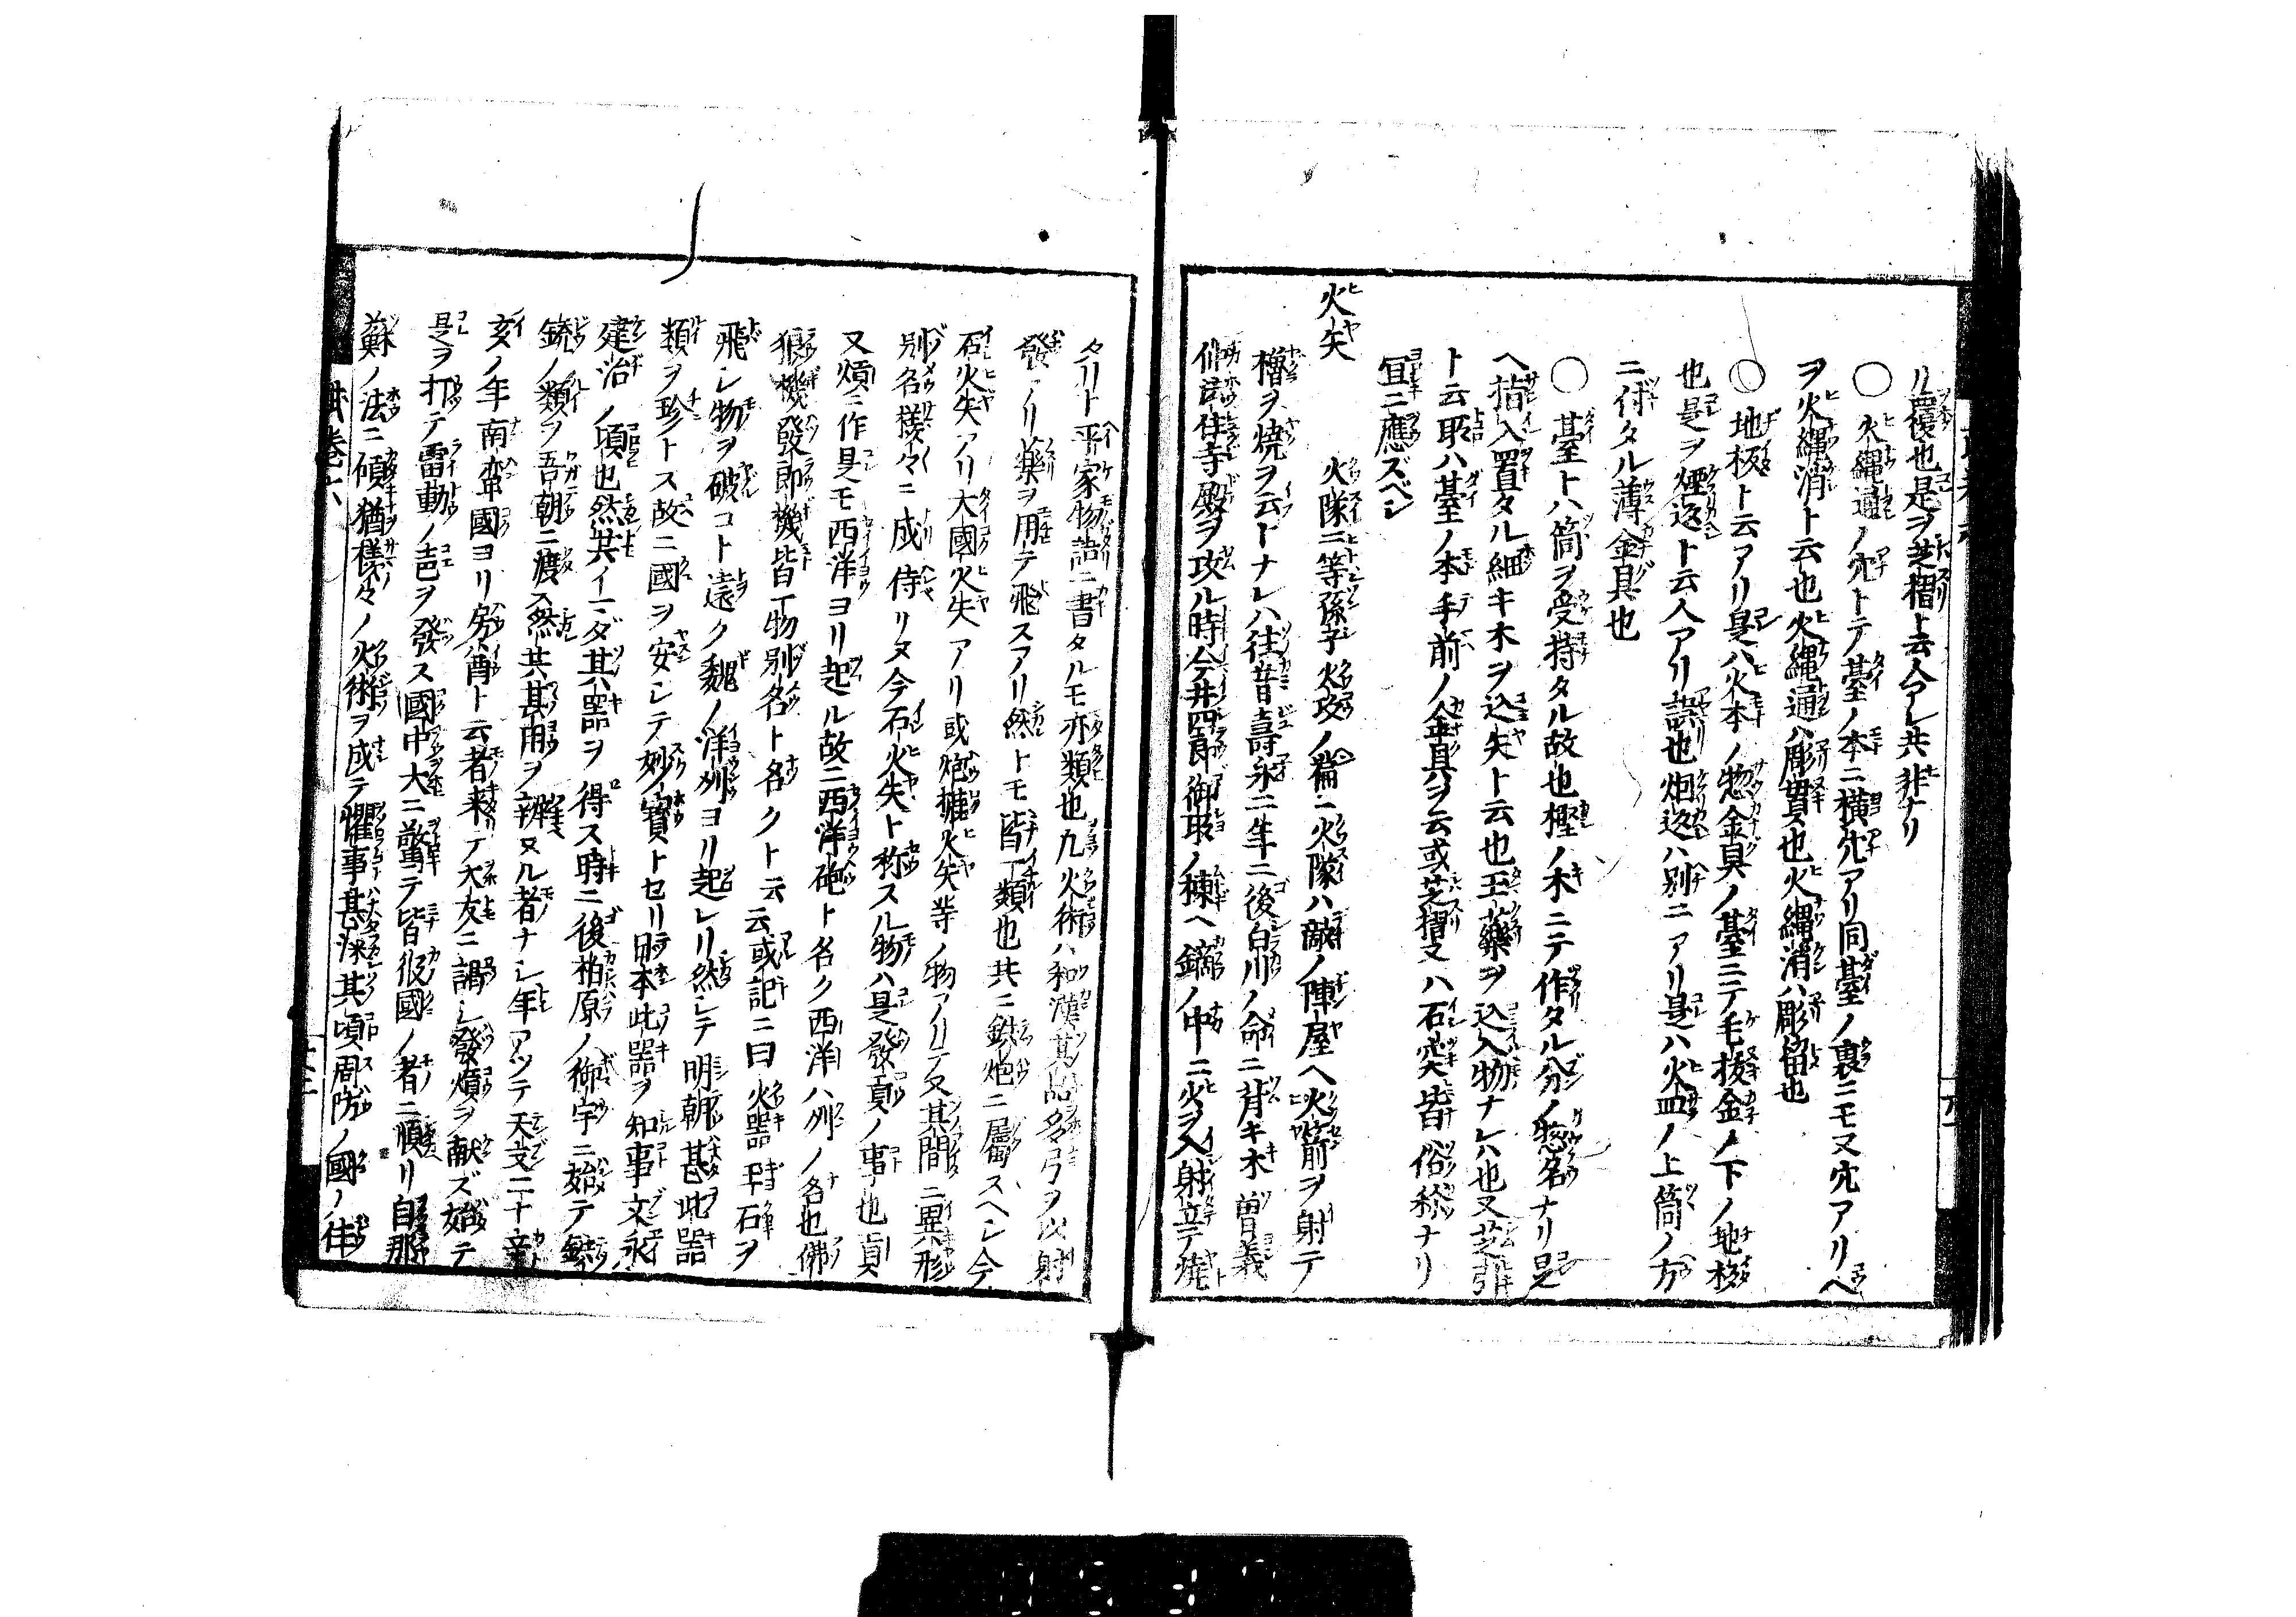 ル覆也是ヲ芝摺ト云人アレ共非ナリ
○火縄通ノ穴トテ臺ノ本ニ横穴アリ同臺ノ裏ニモ又穴アリ
ヲ火縄消ト云也火縄通ハ彫貫也火縄消ハ彫留也
○地板ト云アリ是ハ火本ノ惣金具ノ臺ニテ毛抜金ノ下ノ地板
也是ヲ煙返ト云人アリ誤也烟返ハ別ニアリ是ハ火皿ノ上筒ノ方
ニ付タル薄金具也
○臺トハ筒ヲ受持タル故也樫ノ木ニテ作タル分ノ惣名ナリ是
ヘ指入置タル細キ木ヲ込矢ト云也玉藥ヲ込入物ナレハ也又芝引
ト云所ハ臺ノ本手前ノ金具ヲ云或芝摺又ハ石突皆俗称ナリ
宜ニ應ズベシ
火矢 火隊三等孫子火攻ノ篇ニ火隊ハ敵ノ陣屋ヘ火箭ヲ射テ
櫓ヲ焼ヲ云トナレハ往昔壽永二年ニ後白川ノ命ニ背キ木曽義
仲法住寺殿ヲ攻ル時今井四郎御所ノ棟ヘ鏑ノ中ニ火ヲ入射立テ焼
タリト平家物語ニ書タルモ亦類也凡火術ハ和漢其品多弓ヲ以射
發アリ藥ヲ用テ飛スアリ然トモ皆一類也共ニ鉄炮ニ屬スヘシ今
石火矢アリ大國火矢アリ或炮擂火矢等ノ物アリテ又其間ニ異形
別名様々ニ成侍リヌ今石火矢ト称スル物ハ是發熕ノ事也貢
又熕ニ作是モ西洋ヨリ起ル故ニ西洋砲ト名ク西洋ハ州ノ名也佛
狼機發郎機皆一物別名ト名クト云云或記ニ曰火器平石ヲ
飛シ物ヲ破コト遠ク魏ノ洋州ヨリ起レリ然シテ明朝甚此器
類ヲ珍トス故ニ國ヲ安シテ妙ノ寶トセリ日本此器ヲ知事文永
建治ノ頃也然共イマダ其器ヲ得ス時ニ後柏原ノ御宇ニ始テ鉄
銃ノ類ヲ吾朝ニ渡ス然共其用ヲ辨ヌル者ナシ年アツテ天文二十辛
亥ノ年南蛮國ヨリ ト云者来テ大友ニ謁シ發熕ヲ献ズ始テ
是ヲ打テ雷動ノ声ヲ發ス國中大ニ驚テ皆彼國ノ者ニ順リ自那
蘇ノ法ニ傾猶様々ノ火術ヲ成テ懼事甚深其頃周防ノ國ノ住